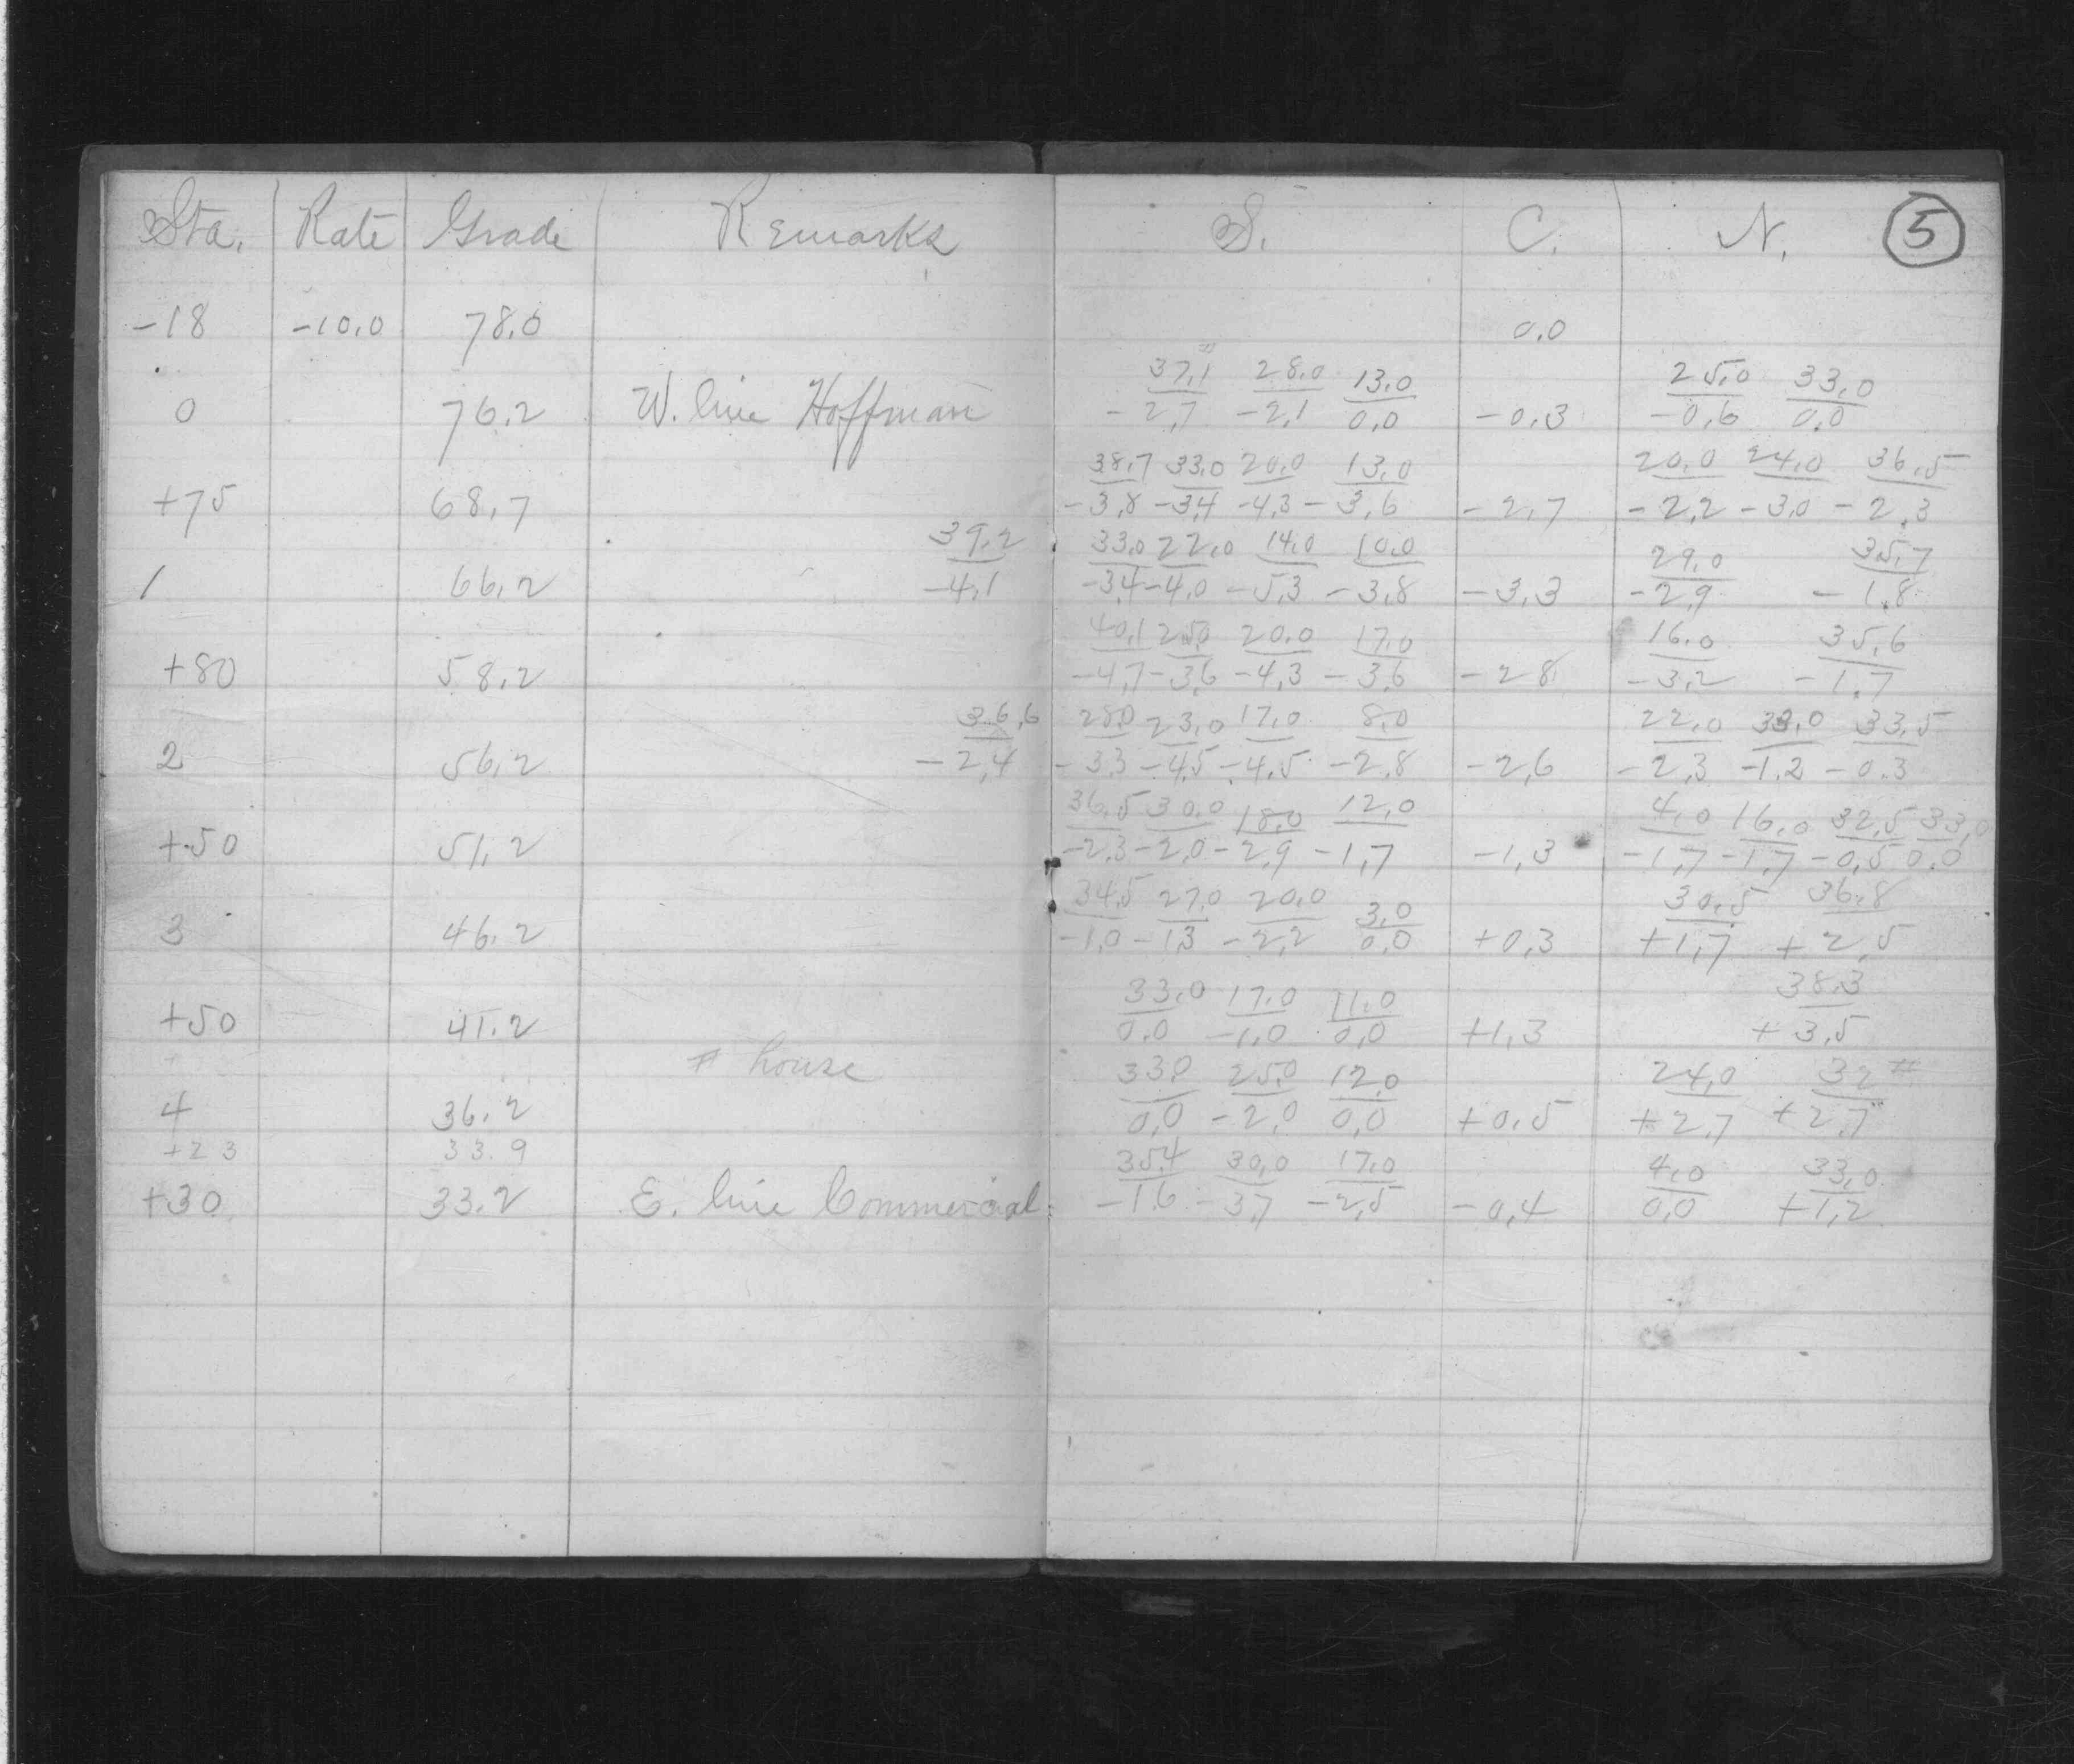 Sta. Rate Grade Remarks S. C. N. 5
-18 -10.0 78.0 0.0
37.1# 28.0 13.0 25.0 33.0
0 76.2 W. line Hoffman -2.7 -2.1 0.0 -0.3 -0.6 0.0
38.7 33.0 20.0 13.0 20.0 24.0 36.5
+75 68.7 -3.8 -3.4 -4.3 -3.6 -2.7 -2.2 -3.0 -2.3
39.2 33.0 22.0 14.0 10.0 29.0 35.7
1 66.2 -4.1 -3.4 -4.0 -5.3 -3.8 -3.3 -2.9 -1.8
40.1 25.0 20.0 17.0 16.0 35.6
+80 58.2 -4.7 -3.6 -4.3 -3.6 -2.8 -3.2 -1.7
36.6 28.0 23.0 17.0 8.0 22.0 33.0 33.5
2 56.2 -2.4 -3.3 -4.5 -4.5 -2.8 -2.6 -2.3 -1.2 -0.3
36.5 30.0 18.0 12.0 4.0 16.0 32.5 33.0
+50 51.2 -2.3 -2.0 -2.9 -1.7 -1.3 -1.7 -1.7 -0.5 0.0
34.5 27.0 20.0 3.0 30.5 36.8
3 46.2 -1.0 -1.3 -2.2 0.0 +0.3 +1.7 +2.5
33.0 17.0 11.0 38.3
+50 41.2 0.0 -1.0 0.0 +1.3 +3.5
# house 33.0 25.0 12.0 24.0 32#
4 36.2 0.0 -2.0 0.0 +0.5 +2.7 +2.7
+23 33.9 35.4 30.0 17.0 4.0 33.0
+30 33.2 E. line Commercial -1.6 -3.7 -2.5 -0.4 0.0 +1.2